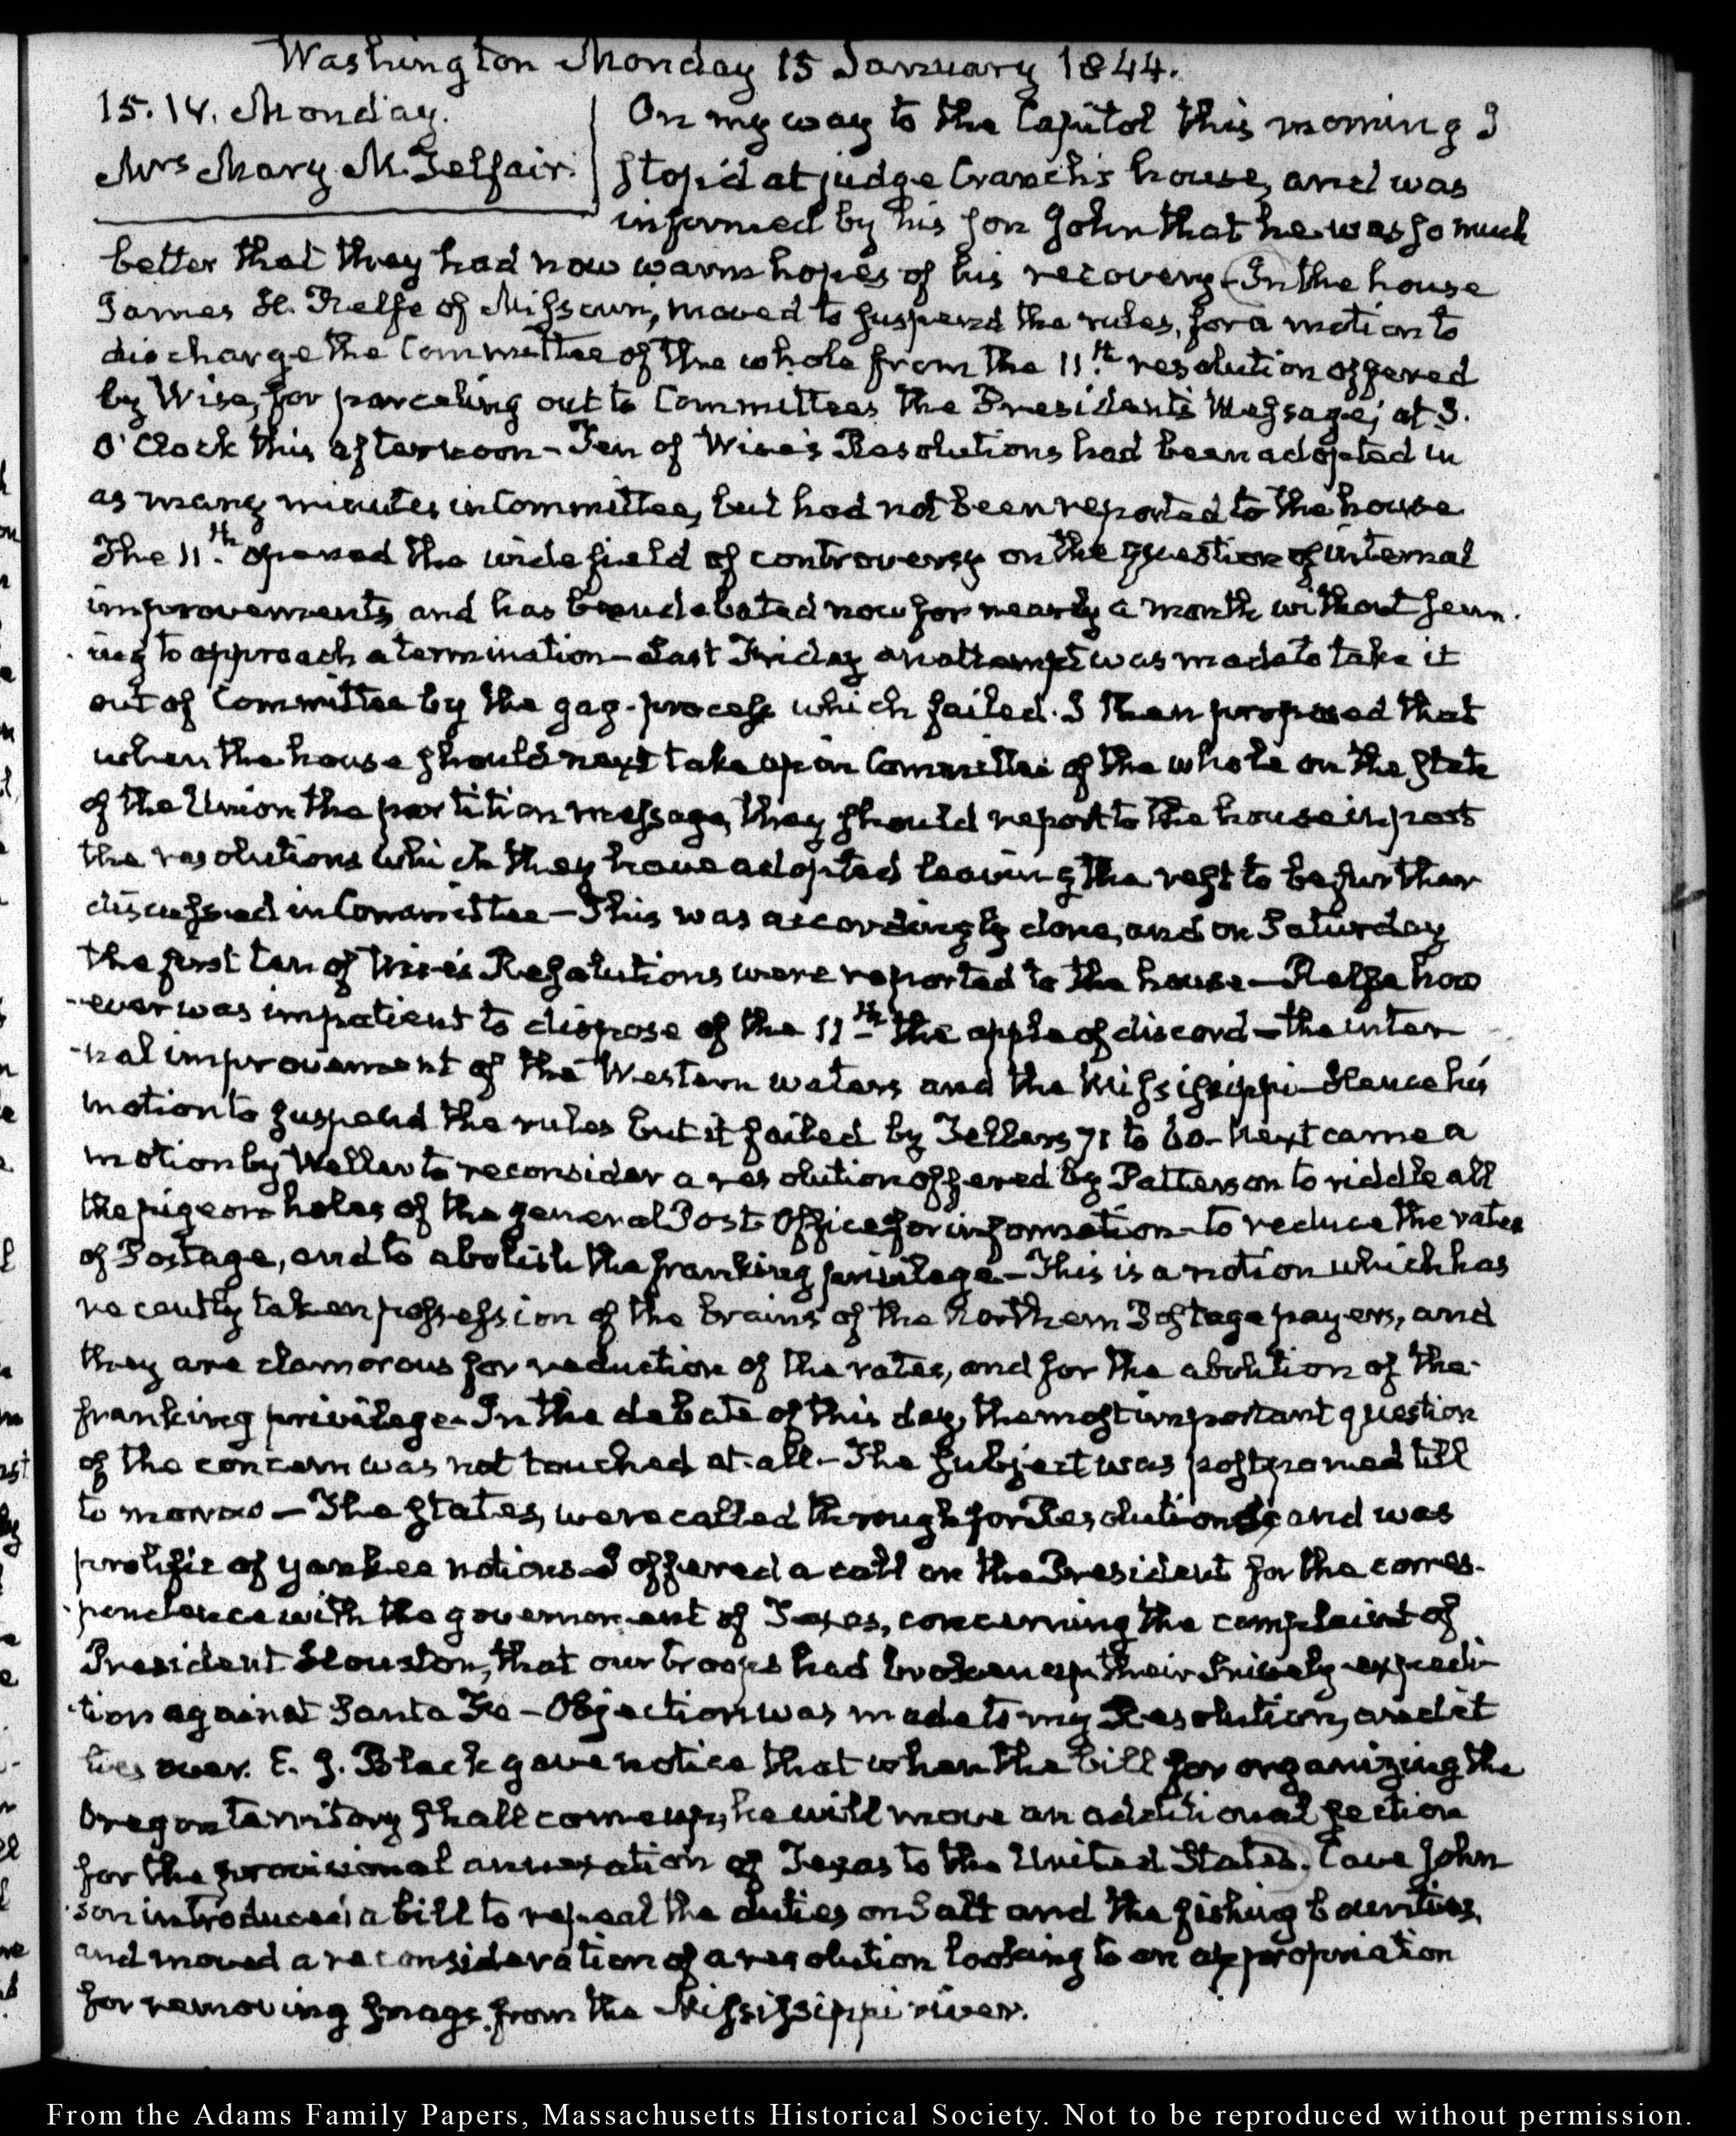 Washington Monday 15 January 1844.
15. IV. Monday.
Mrs Mary M. Telfair.
On my way to the Capitol this morning I
stop'd at judge Cranch's house, and was
informed by his son John that he was so much
better that they had now warm hopes of his recovery - In the house
James H. Relfe of Missouri, moved to suspend the rules, for a motion to
discharge the Committee of the whole from the 11th resolution offered
by Wise, for parceling out to Committees the President's Message; at 3.
O'Clock this afternoon - Ten of Wise's Resolutions had been adopted in
as many minutes in Committee, but had not been reported to the house
The 11th opened the wide field of controversy on the question of internal
improvements and has been debated now for nearly a month without seem-
ing to approach a termination - Last Friday an attempt was made to take it
out of Committee by the gag-process which failed. I then proposed that
when the house should next take up in Committee of the whole on the State
of the Union the partition message, they should report to the house in part
the resolutions which they have adopted leaving the rest to be further
discussed in Committee - This was accordingly done, and on Saturday
the first ten of Wise's Resolutions were reported to the house - Relfe how
-ever was impatient to dispose of the 11th the apple of discord - the inter
-nal improvement of the Western waters and the Mississippi - Hence his
motion to suspend the rules but it failed by Tellers 71 to 60 - Next came a
motion by Weller to reconsider a resolution offered by Patterson to riddle all
the pigeon holes of the general Post Office for information - to reduce the rates
of Postage, and to abolish the franking privilege - This is a notion which has
recently taken possession of the brains of the Northern Postage payers, and
they are clamorous for reduction of the rates, and for the abolition of the
franking privilege - In the debate of this day, the most important question
of the concern was not touched at all - The subject was postponed till
to morrow - The States, were called through for Resolutions and was
prolific of yankee notions - I offered a call on the President for the corres-
-pondence with the government of Texas, concerning the complaint of
President Houston, that our troops had broken up their Snively expedi-
-tion against Santa Fe - Objection was made to my Resolution, and it
lies over. E. J. Black gave notice that when the bill for organizing the
Oregon territory shall come up, he will move an additional section
for the provisional annexation of Texas to the United States. Cave John
-son introduced a bill to repeal the duties on Salt and the fishing bounties,
and moved a reconsideration of a resolution looking to an appropriation
for removing snags from the Mississippi river.
From the Adams Family Papers, Massachusetts Historical Society. Not to be reproduced without permission.